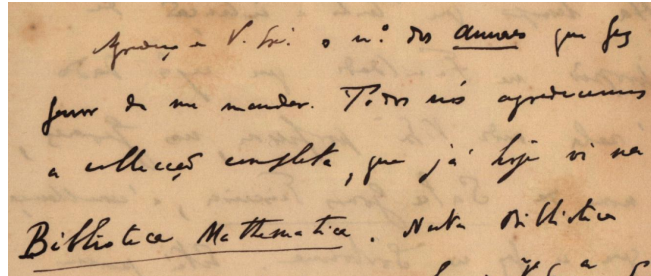 Agradeço a V. Ex.ª o nº. dos Annaes que fez
favor de me mandar. Todos nós agradecemos
a collecção completa, que já hoje vi na
Bibliotheca Mathematica. Nesta Bibliotheca